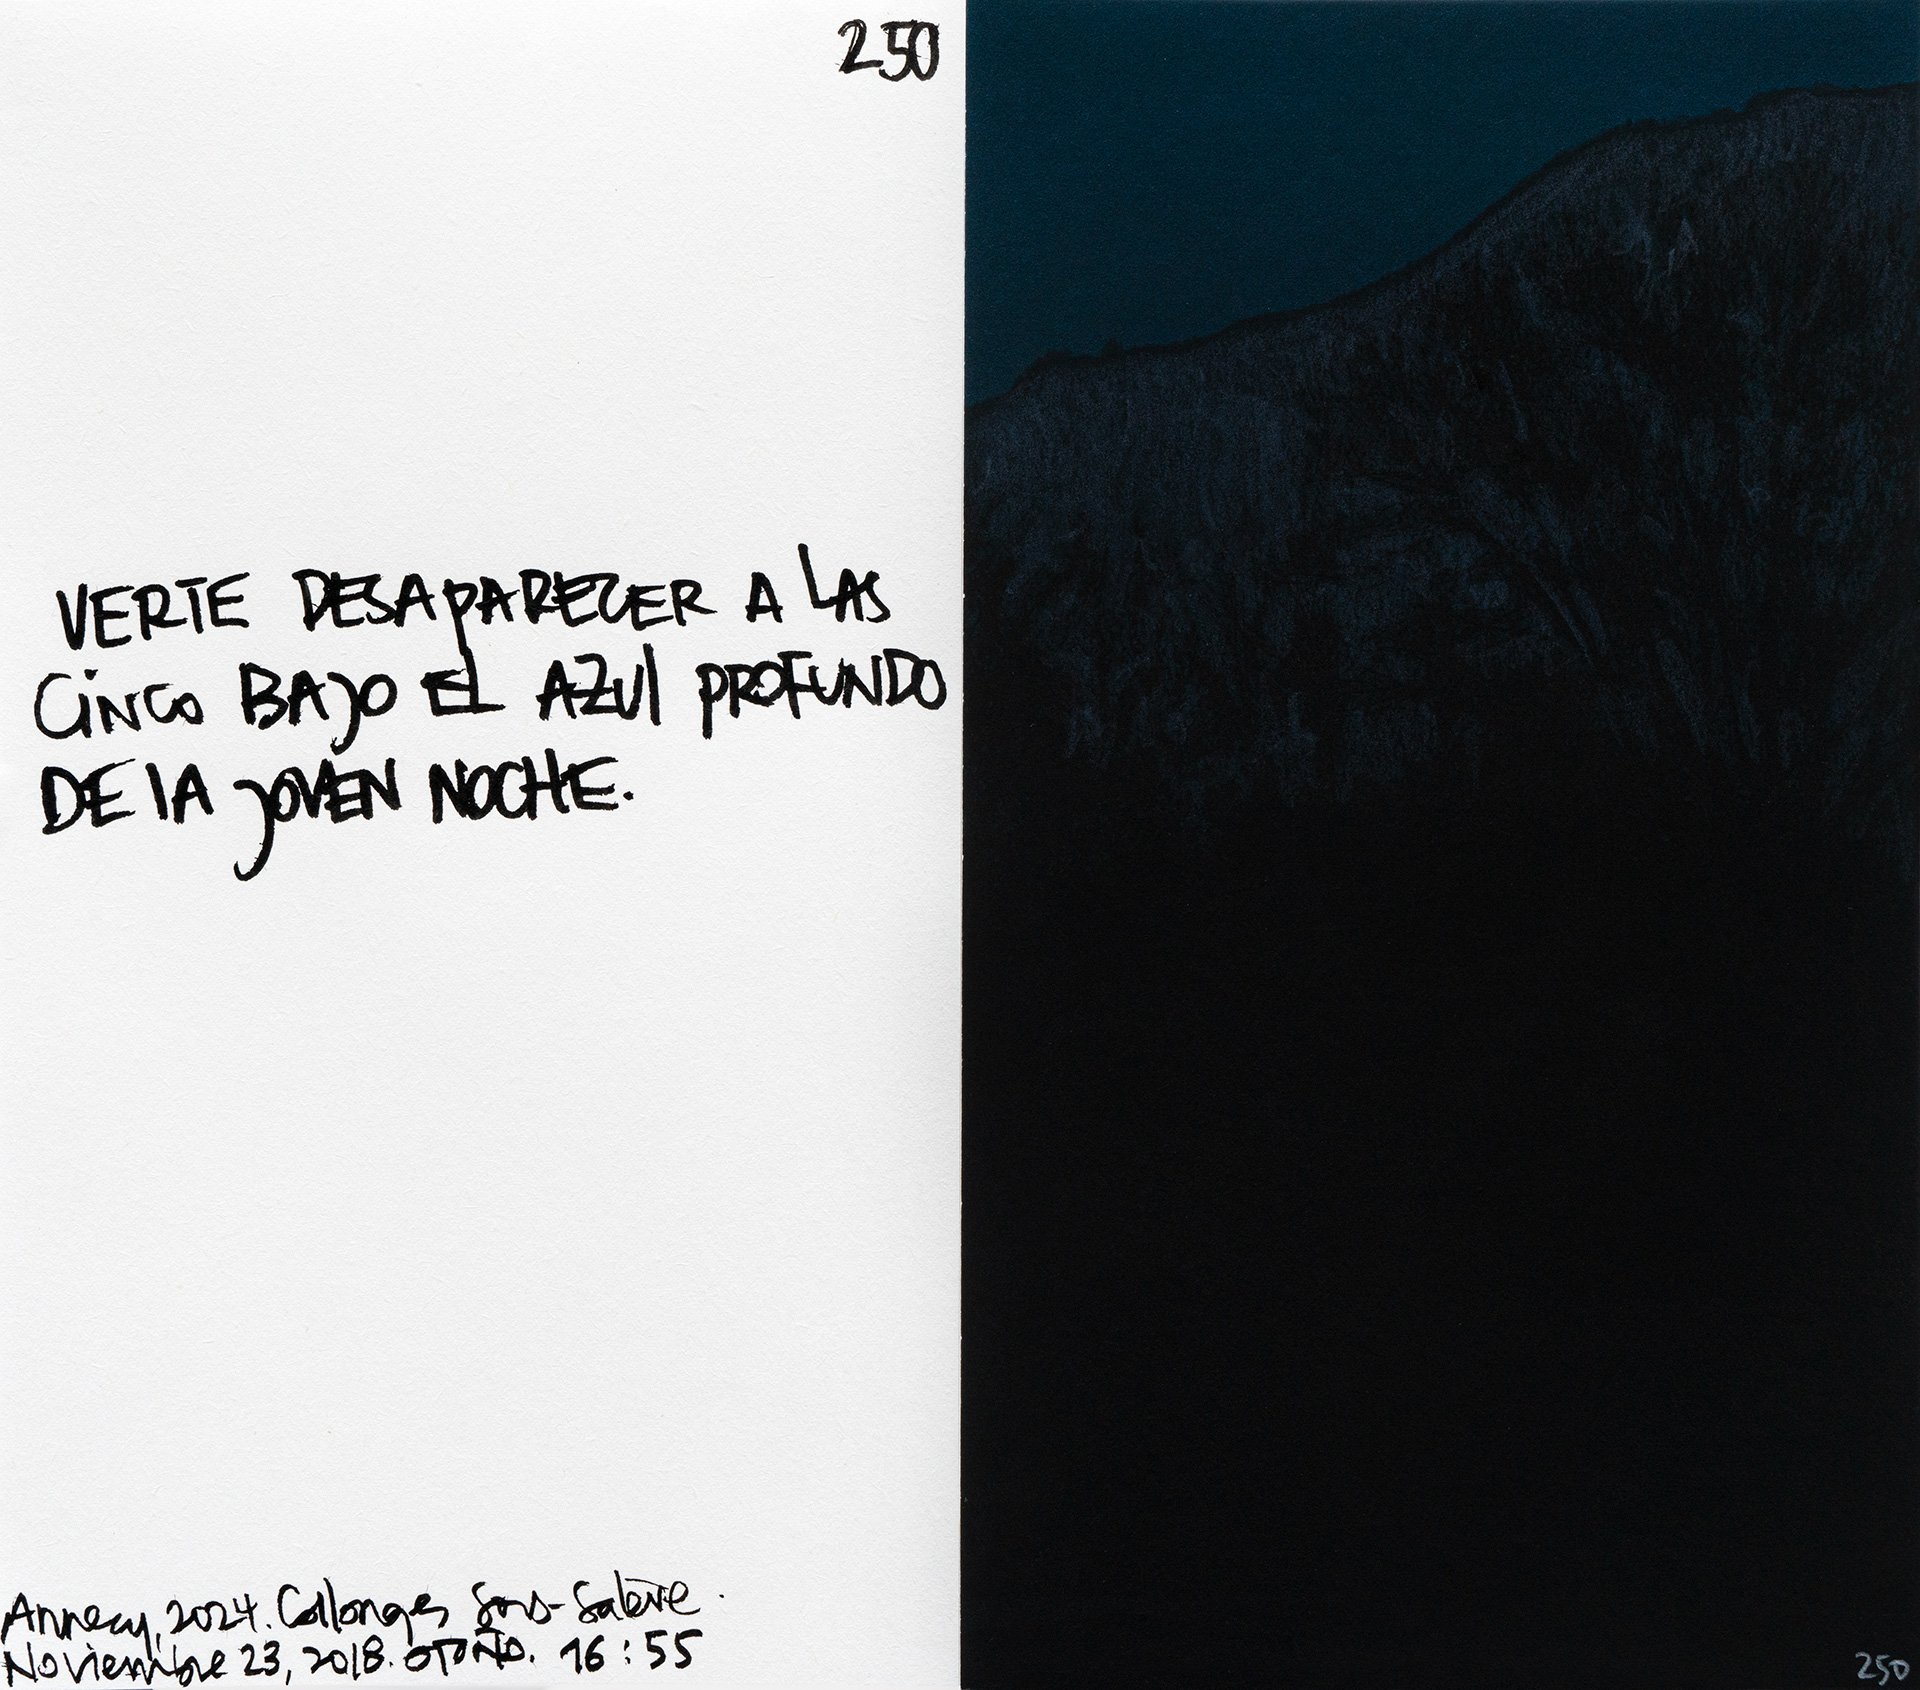 250
VERTE DESAPARECER A LAS
CINCO BAJO EL AZUL PROFUNDO
DE LA JOVEN NOCHE.
Annecy, 2024. Collonges Sous-Salève.
Noviembre 23, 2018. OTOÑO. 16:55
250